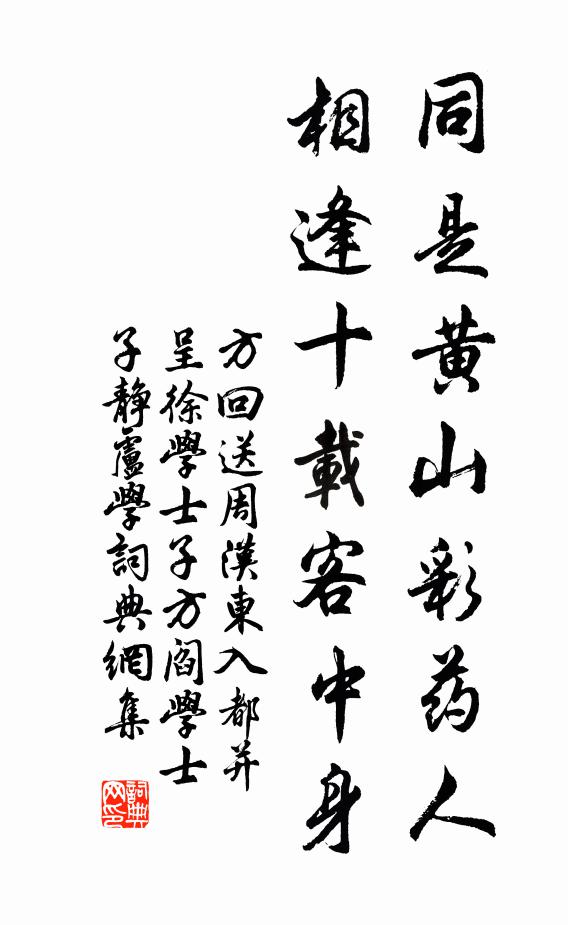 同是黄山彩药人
相逢十載客中身
方回送周漢東入都并
呈徐學士子方閻學士
子靜盧學詞典網集
詞典网印